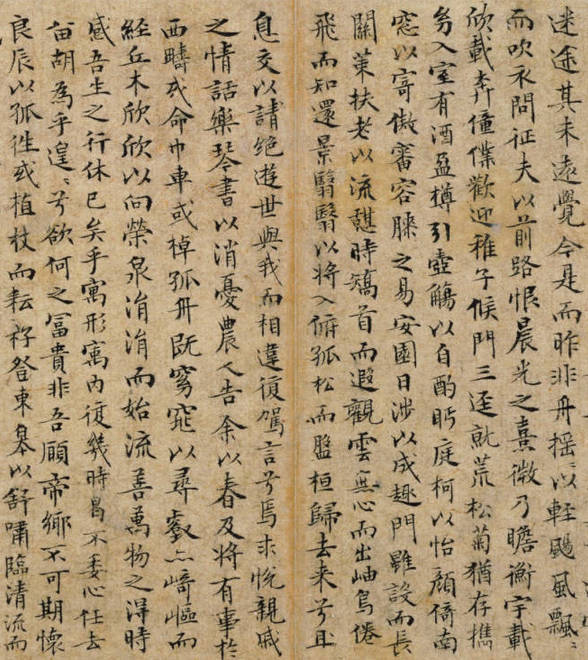 迷途其未遠覺今是而昨非舟搖〻以輕颺風飄〻
而吹衣問征夫以前路恨晨光之熹微乃瞻衡宇載
欣載奔僮僕歡迎稚子候門三逕就荒松菊猶存攜
幼入室有酒盈樽引壺觴以自酌眄庭柯以怡顏倚南
窓以寄傲審容膝之易安園日涉以成趣門雖設而長
關策扶老以流憇時矯首而遐觀雲無心而出岫鳥倦
飛而知還景翳翳以將入俯孤松而盤桓歸去来兮且
息交以請絕遊世與我而相違復駕言兮焉求悅親戚
之情話樂琴書以消憂農人告余以春及將有事於
西疇或命巾車或棹孤舟既窈窕以尋壑亦崎嶇而
經丘木欣欣以向榮泉涓涓而始流善萬物之得時
感吾生之行休已矣乎寓形寓內復幾時曷不委心任去
畄胡為乎遑〻兮欲何之冨貴非吾願帝鄉不可期懷
良辰以孤往或植杖而耘耔登東皋以舒嘯臨清流而